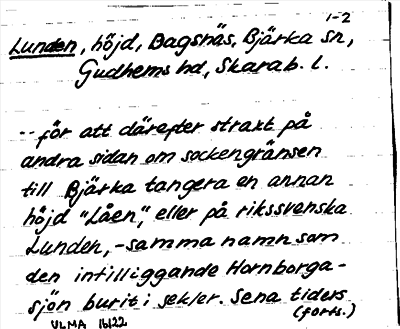 1-2
Lunden, höjd, Bagsnäs, Bjärka sn,
Gudhems hd, Skarab. l.
-- för att därefter straxt på
andra sidan om sockengränsen
till Bjärka tangera en annan
höjd "Låen", eller på rikssvenska
Lunden, - samma namn som
den intilliggande Hornborga-
sjön burit i sekler. Sena tiders
(forts.)
ULMA 16122